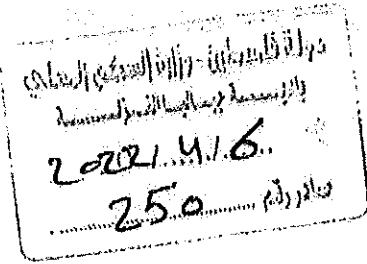 دولة فلسطين - وزارة الحكم المحلي
2022/4/6
صادر رقم 250